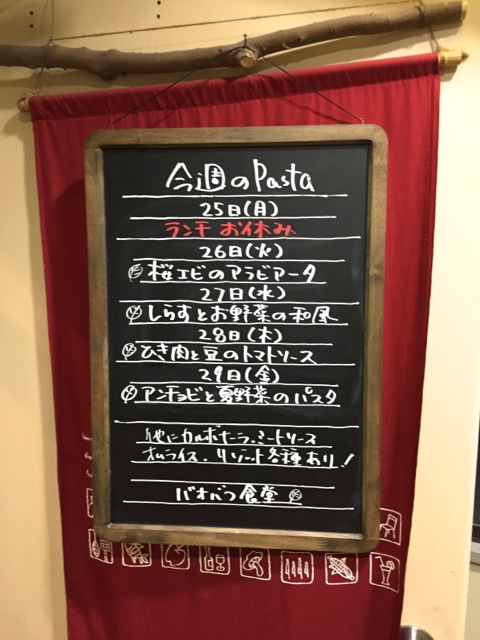 今週のPasta
25日(月)
ランチ お休み
26日(火)
桜エビのアラビアータ
27日(水)
しらすとお野菜の和風
28日(木)
ひき肉と豆のトマトソース
29日(金)
アンチョビと夏野菜のパスタ
他にカルボナーラ、ミートソース
オムライス、リゾット各種あり!
バオバブ食堂